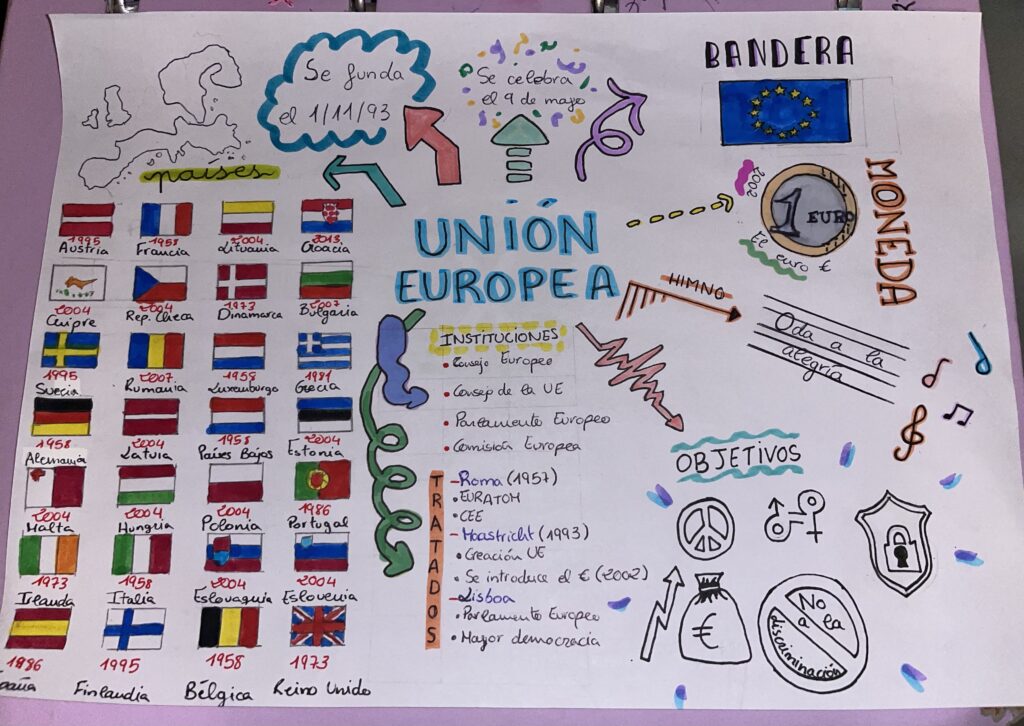 Se funda
el 1/11/93
Se celebra
el 9 de mayo
BANDERA
países
UNIÓN
EUROPEA
2002
1 EURO
El euro €
MONEDA
HIMNO
Oda a la
alegría
1995
Austria
1958
Francia
2004
Lituania
2013
Croacia
2004
Chipre
2004
Rep. Checa
1973
Dinamarca
2007
Bulgaria
1995
Suecia
2007
Rumania
1958
Luxemburgo
1981
Grecia
1958
Alemania
2004
Latvia
1958
Países Bajos
2004
Estonia
2004
Malta
2004
Hungria
2004
Polonia
1986
Portugal
1973
Irlanda
1958
Italia
2004
Eslovaquia
2004
Eslovenia
1986
paña
1995
Finlandia
1958
Bélgica
1973
Reino Unido
INSTITUCIONES
• Consejo Europeo
• Consejo de la UE
• Parlamento Europeo
• Comisión Europea
TRATADOS
-Roma (1957)
• EURATOM
• CEE
-Maastricht (1993)
• Creación UE
• Se introduce el € (2002)
-Lisboa
• Parlamento Europeo
• Mayor democracia
OBJETIVOS
€
No a la
discriminación